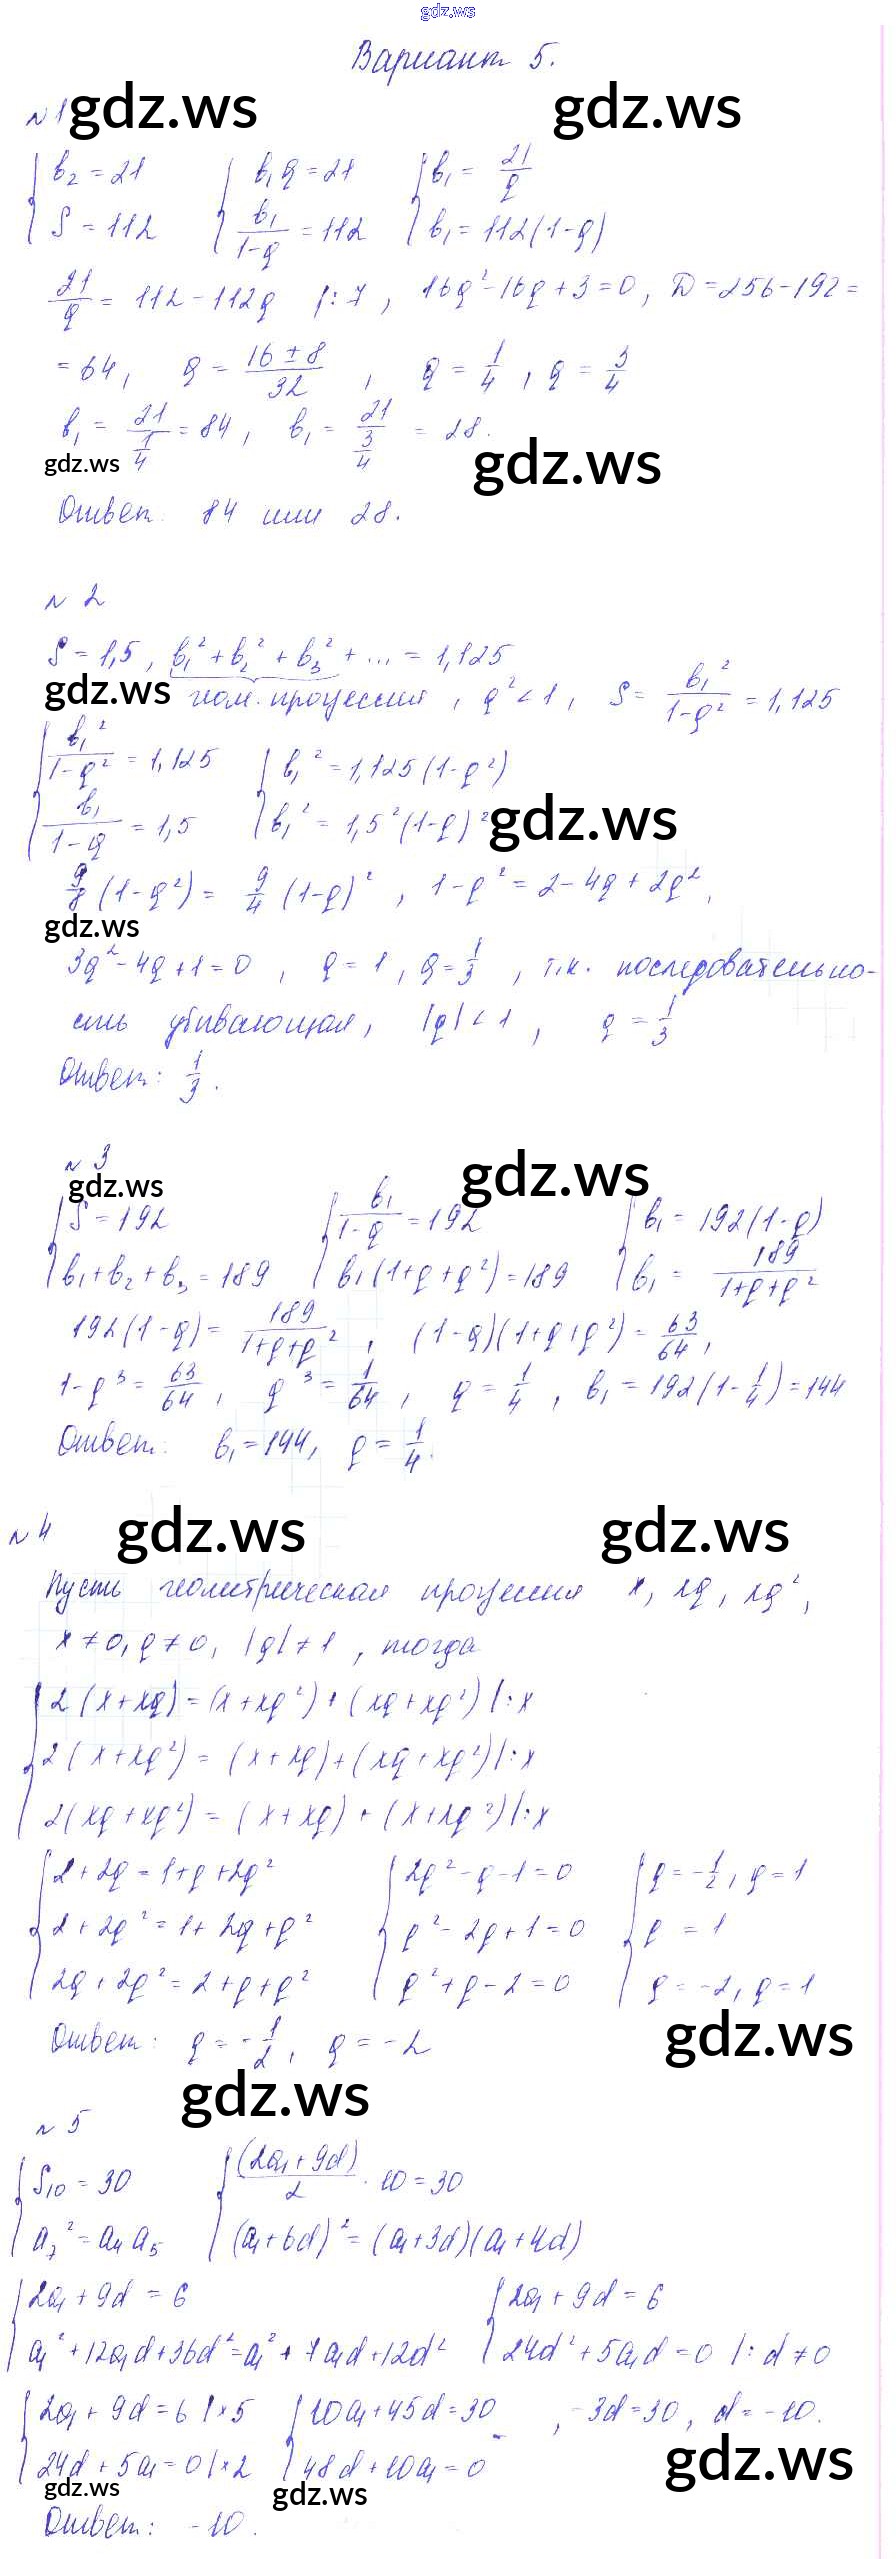 gdz.ws
Вариант 5.
№1 gdz.ws gdz.ws
{b₂ = 21 {b₁q = 21 {b₁ = 21/q
{S = 112 {b₁/(1-q) = 112 {b₁ = 112(1-q)
21/q = 112 - 112q |:7, 16q² - 16q + 3 = 0, D = 256 - 192 =
= 64, q = (16 ± 8)/32, q = 1/4, q = 3/4
b₁ = 21/(1/4) = 84, b₁ = 21/(3/4) = 28.
gdz.ws gdz.ws
Ответ: 84 или 28.
№ 2
S = 1,5, b₁² + b₂² + b₃² + ... = 1,125
gdz.ws геом. прогрессия, q² < 1, S = b₁²/(1-q²) = 1,125
{b₁²/(1-q²) = 1,125 {b₁² = 1,125(1-q²)
{b₁/(1-q) = 1,5 {b₁² = 1,5²(1-q)² gdz.ws
9/8 (1-q²) = 9/4 (1-q)², 1-q² = 2-4q+2q²,
gdz.ws
3q² - 4q + 1 = 0, q = 1, q = 1/3, т.к. последовательно-
сть убывающая, |q| < 1, q = 1/3
Ответ: 1/3.
№ 3
gdz.ws gdz.ws
{S = 192 {b₁/(1-q) = 192 {b₁ = 192(1-q)
{b₁ + b₂ + b₃ = 189 {b₁(1+q+q²) = 189 {b₁ = 189/(1+q+q²)
192(1-q) = 189/(1+q+q²), (1-q)(1+q+q²) = 63/64,
1-q³ = 63/64, q³ = 1/64, q = 1/4, b₁ = 192(1-1/4) = 144
Ответ: b₁ = 144, q = 1/4.
№4 gdz.ws gdz.ws
Пусть геометрическая прогрессия x, xq, xq²,
x ≠ 0, q ≠ 0, |q| ≠ 1, тогда
{2(x+xq) = (x+xq²) + (xq+xq²) |:x
{2(x+xq²) = (x+xq) + (xq+xq²) |:x
{2(xq+xq²) = (x+xq) + (x+xq²) |:x
{2+2q = 1+q+2q² {2q²-q-1 = 0 {q = -1/2, q = 1
{2+2q² = 1+2q+q² {q²-2q+1 = 0 {q = 1
{2q+2q² = 2+q+q² {q²+q-2 = 0 {q = -2, q = 1
Ответ: q = -1/2, q = -2 gdz.ws
gdz.ws
№ 5
{S₁₀ = 30 {(2a₁+9d)/2 · 10 = 30
{a₇² = a₄a₅ {(a₁+6d)² = (a₁+3d)(a₁+4d)
{2a₁+9d = 6 {2a₁+9d = 6
{a₁²+12a₁d+36d² = a₁²+7a₁d+12d² {24d²+5a₁d = 0 |:d ≠ 0
{2a₁+9d = 6 |×5 {10a₁+45d = 30, -3d = 30, d = -10.
{24d+5a₁ = 0 |×2 {48d+10a₁ = 0 gdz.ws
gdz.ws gdz.ws
Ответ: -10.